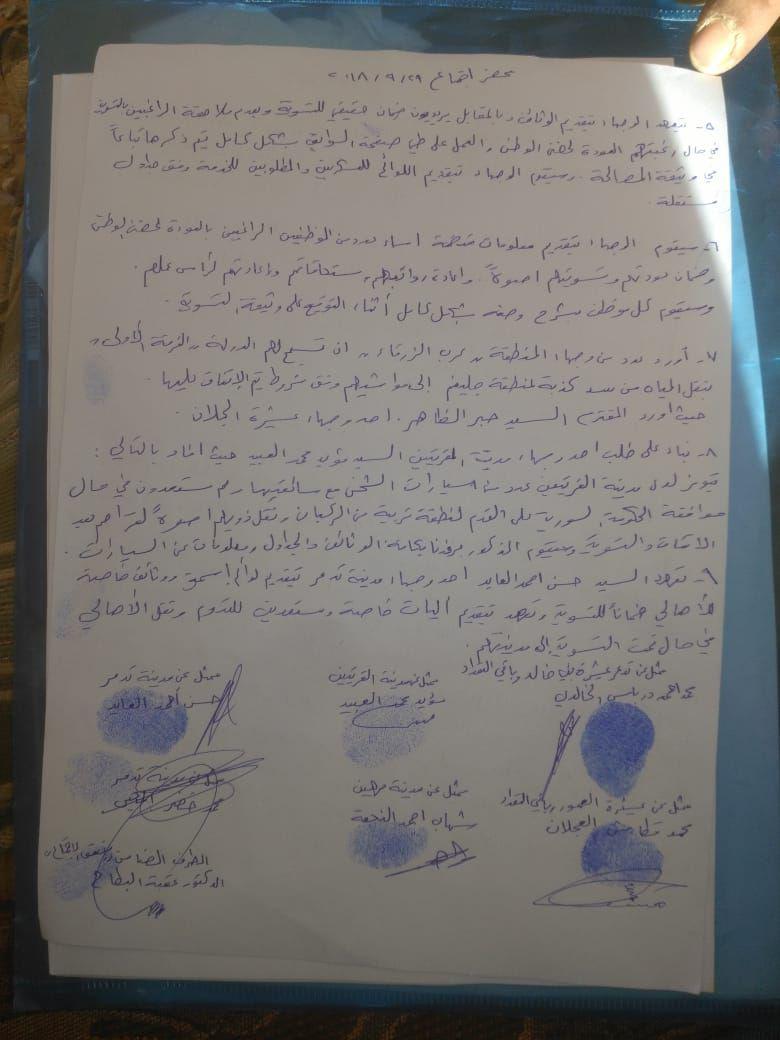 محضر اجتماع ٢٠١٨/٩/٢٩
٥- تتعهد الوجهاء بتقديم الوثائق وبالمقابل يريدون ضمان حقيقي للتسوية وعدم ملاحقة الراغبين بالتسوية
في حال رغبتهم العودة لحضن الوطن والعمل على طي صفحة السوابق بشكل كامل يتم ذكرها تباعاً
في وثيقة المصالحة. وسيقوم الوجهاء بتقديم اللوائح للعسكريين والمطلوبين للخدمة وفق جداول
مستقلة.
٦- سيقوم الوجهاء بتقديم معلومات متضمنة أسماء عدد من الموظفين الراغبين بالعودة لحضن الوطن
وضمان عودتهم وتسويتهم اصولاً. واعادة رواتبهم ومستحقاتهم وإعادتهم لرأس عملهم.
وسيقوم كل موظف بشرح وضعه بشكل كامل أثناء التوقيع على وثيقة التسوية.
٧- أورد عدد من وجهاء المنطقة من عرب الزرقاء ان تسمح لهم الدولة الأولى
بنقل المياه من سد كذبة لمنطقة جليغم الى مواشيهم وفق شروط يتم الإتفاق عليها.
حيث اورد المقترح السيد جبر الظاهر. احد وجهاء عشيرة الجلان.
٨- بناء على طلب احد وجهاء مدينة القريتين السيد مؤيد محمد العبيد حيث افاد بالتالي:
يتوفر لدى مدينة القريتين عدد من السيارات الشحن مع سائقيها وهم مستعدون في حال
موافقة الحكومة السورية على القدوم لمنطقة قريبة من الركبان ونقل ذويهم اصولاً لقراهم بعد
الاتفاق والتسوية وسيقوم المذكور برفدنا بكافة الوثائق والجداول ومعلومات عن السيارات.
٩- تعهد السيد حسن احمد العايد احد وجهاء مدينة تدمر بتقديم لوائح إسمية ووثائق خاصة
للأهالي ضماناً للتسوية وتعهد بتقديم آليات خاصة ومستعدين للقدوم ونقل الأهالي
في حال تمت التسوية إلى مدينتهم.
ممثل عن تدمر عشيرة بني خالد وباقي القداد
محمد احمد درباس الخالدي
ممثل عن مدينة القريتين
مؤيد محمد العبيد
ممثل عن مدينة تدمر
حسن أحمد العايد
ممثل عن عشيرة العمور وباقي القداد
محمد العجلان
ممثل عن مدينة مهين
شهاب احمد النجمة
ممثل عن مدينة تدمر
محمد خضر
الطرف الضامن الاجتماع
الدكتور عقبة البطاح